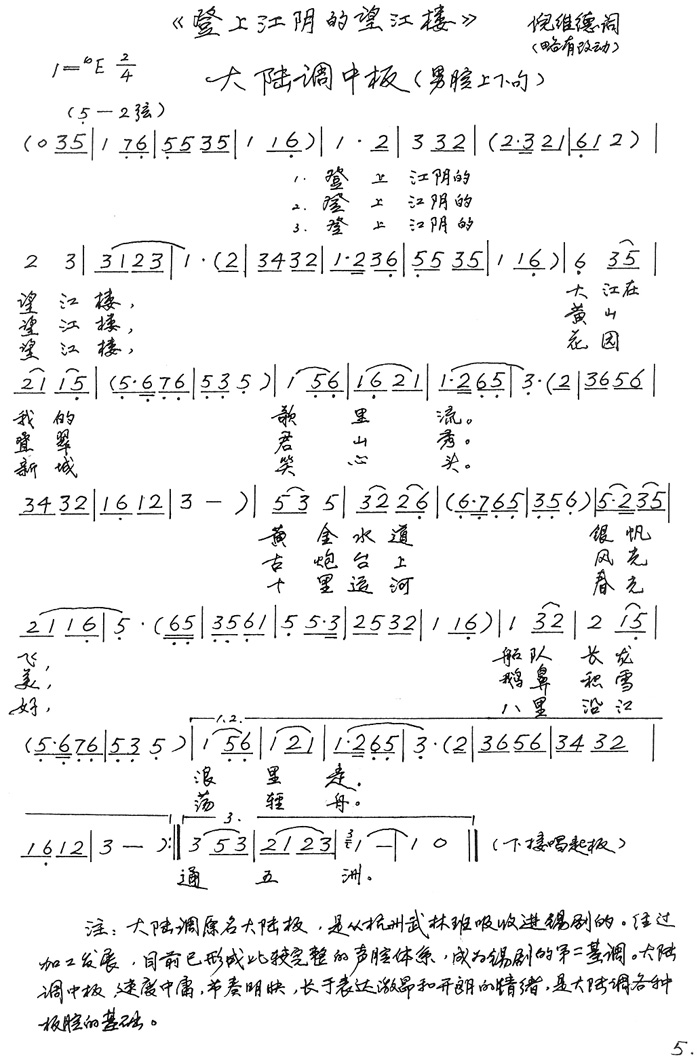 《登上江阴的望江楼》 倪维德词
(略有改动)
1=♭E 2/4
大陆调中板(男腔上下句)
(5—2弦)
(0 35|1 76|55 35|1 16)|1·2|3 32|(2·321|612)|
1. 登上江阴的
2. 登上江阴的
3. 登上江阴的
2 3|3123|1·(2|3432|1·236|55 35|1 16)|6 35|
望江楼, 大江在
望江楼, 黄山
望江楼, 花园
21 15|(5·676|535)|1 56|1621|1·265|3·(2|3656|
我的 歌里流。
叠翠 君山秀。
新城 笑心头。
3432|1612|3—)|53 5|32 26|(6·765|356)|5·235|
黄金水道 银帆
古炮台上 风光
十里运河 春光
2116|5·(65|3561|5 5·3|2532|1 16)|1 32|2 15|
飞, 船队长龙
美, 鹅鼻积雪
好, 八里沿江
(5·676|535)|1 56|121|1·265|3·(2|3656|34 32|
1.2.
浪里走。
荡轻舟。
1612|3—):‖3 53|2123|3 1—|1 0‖(下接唱起板)
3.
通五洲。
注:大陆调原名大陆板,是从杭州武林班吸收进锡剧的。经过
加工发展,目前已形成比较完整的声腔体系,成为锡剧的第二基调。大陆
调中板,速度中庸,节奏明快,长于表达激昂和开朗的情绪,是大陆调各种
板腔的基础。
5.